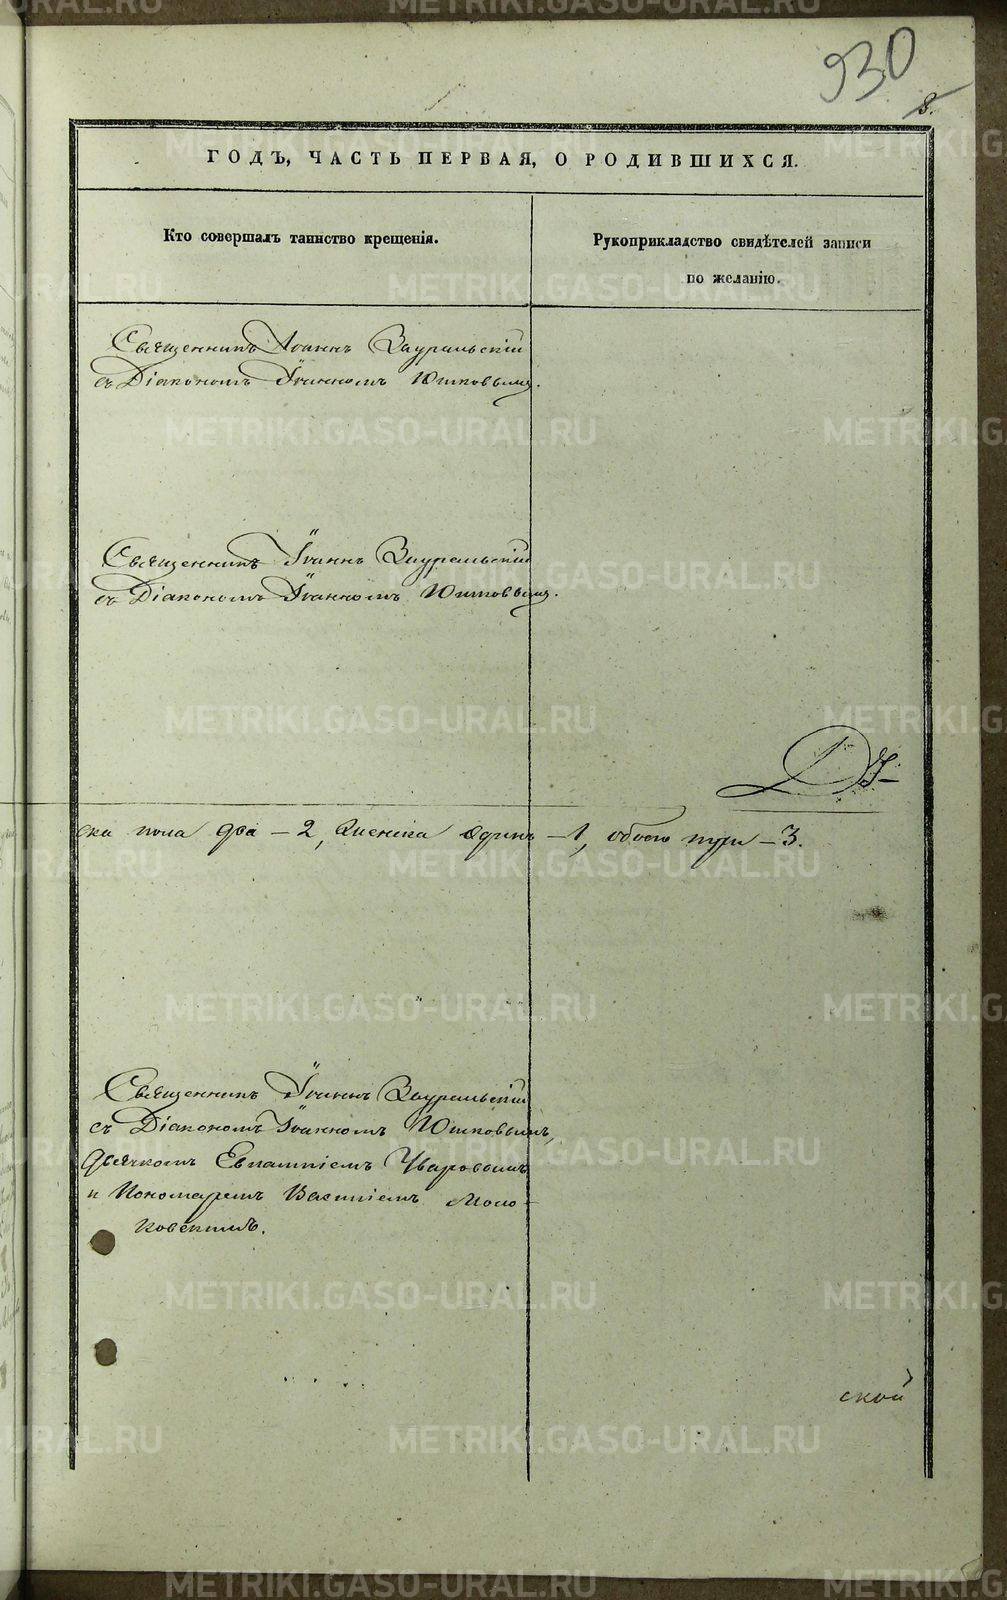 930
8.
ГОДЪ, ЧАСТЬ ПЕРВАЯ, О РОДИВШИХСЯ.
Кто совершалъ таинство крещенія.
Рукоприкладство свидѣтелей записи
по желанію.
Священникъ Іоаннъ Зауральскій
съ Діакономъ Іоанномъ Юшковымъ.
Священникъ Іоаннъ Зауральскій
съ Діакономъ Іоанномъ Юшковымъ.
ска пола два – 2, женска одинъ – 1, обоего три – 3.
Священникъ Іоаннъ Зауральскій
съ Діакономъ Іоанномъ Юшковымъ,
дьячкомъ Евпатіемъ Уваровымъ
и Пономаремъ Василіемъ Моло-
ковскимъ.
ской
METRIKI.GASO-URAL.RU